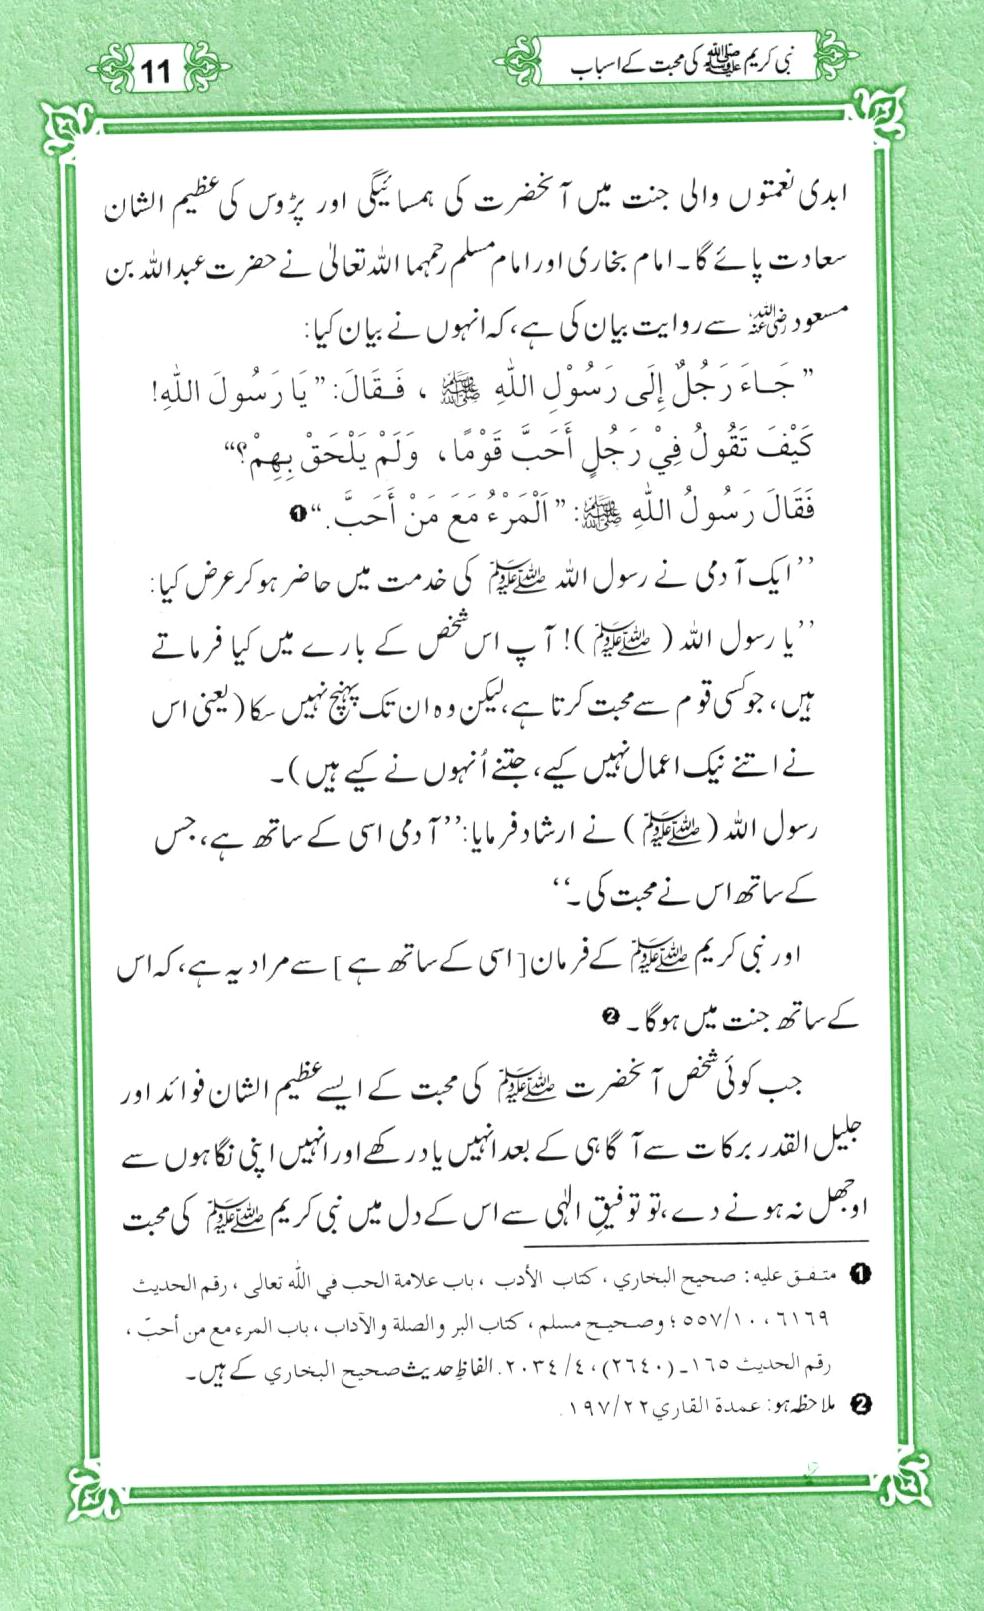 نبی کریم ﷺ کی محبت کے اسباب
11
ابدی نعمتوں والی جنت میں آنحضرت کی ہمسائیگی اور پڑوس کی عظیم الشان
سعادت پائے گا۔ امام بخاری اور امام مسلم رحمہما اللہ تعالیٰ نے حضرت عبد اللہ بن
مسعود رضی اللہ عنہ سے روایت بیان کی ہے، کہ انہوں نے بیان کیا:
”جَاءَ رَجُلٌ إِلَى رَسُوْلِ اللّٰهِ ﷺ ، فَقَالَ: ”يَا رَسُولَ اللّٰهِ!
كَيْفَ تَقُولُ فِيْ رَجُلٍ أَحَبَّ قَوْمًا، وَلَمْ يَلْحَقْ بِهِمْ؟“
فَقَالَ رَسُوْلُ اللّٰهِ ﷺ: ”اَلْمَرْءُ مَعَ مَنْ أَحَبَّ.“ ❶
’’ایک آدمی نے رسول اللہ ﷺ کی خدمت میں حاضر ہو کر عرض کیا:
’’یا رسول اللہ ( ﷺ )! آپ اس شخص کے بارے میں کیا فرماتے
ہیں، جو کسی قوم سے محبت کرتا ہے، لیکن وہ ان تک پہنچ نہیں سکا (یعنی اس
نے اتنے نیک اعمال نہیں کیے، جتنے اُنہوں نے کیے ہیں)۔
رسول اللہ (ﷺ) نے ارشاد فرمایا: ’’آدمی اسی کے ساتھ ہے، جس
کے ساتھ اس نے محبت کی۔‘‘
اور نبی کریم ﷺ کے فرمان [اسی کے ساتھ ہے] سے مراد یہ ہے، کہ اس
کے ساتھ جنت میں ہوگا۔ ❷
جب کوئی شخص آنحضرت ﷺ کی محبت کے ایسے عظیم الشان فوائد اور
جلیل القدر برکات سے آگاہی کے بعد انہیں یاد رکھے اور انہیں اپنی نگاہوں سے
اوجھل نہ ہونے دے، تو توفیقِ الٰہی سے اس کے دل میں نبی کریم ﷺ کی محبت
❶ متفق عليه: صحيح البخاري ، كتاب الأدب ، باب علامة الحب في الله تعالى ، رقم الحديث
٦١٦٩ ، ١٠/٥٥٧ ؛ وصحيح مسلم ، كتاب البر والصلة والآداب ، باب المرء مع من أحبّ ،
رقم الحديث ١٦٥ـ (٢٦٤٠)، ٤/ ٢٠٣٤. الفاظِ حدیث صحیح البخاري کے ہیں۔
❷ ملاحظہ ہو: عمدة القاري ٢٢/١٩٧.